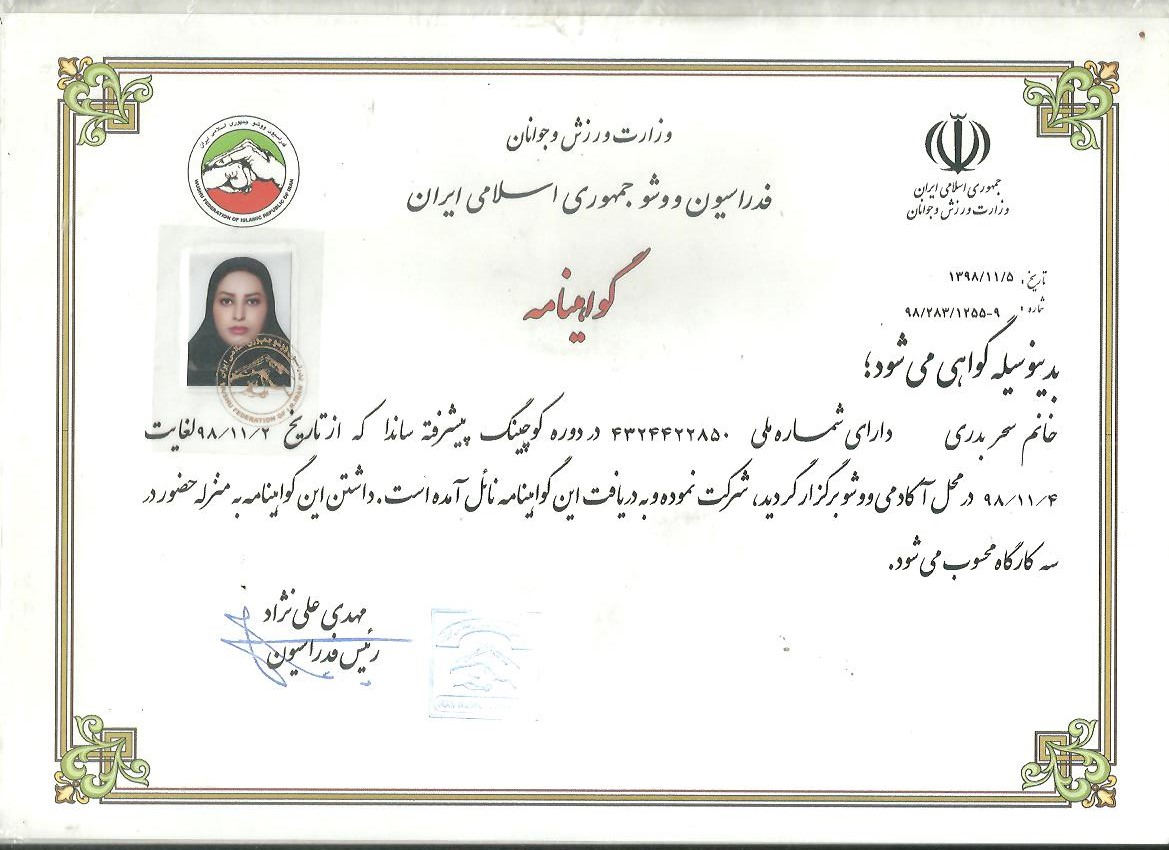 وزارت ورزش و جوانان
فدراسیون ووشو جمهوری اسلامی ایران
جمهوری اسلامی ایران
وزارت ورزش و جوانان
فدراسیون ووشو جمهوری اسلامی ایران
WUSHU FEDERATION OF ISLAMIC REPUBLIC OF IRAN
گواهینامه
تاریخ: ۱۳۹۸/۱۱/۵
شماره: ۹۸/۲۸۳/۱۲۵۵-۹
بدینوسیله گواهی می شود؛
خانم سحر بدری دارای شماره ملی ۴۳۲۴۴۲۲۸۵۰ در دوره کوچینگ پیشرفته ساندا که از تاریخ ۹۸/۱۱/۲ لغایت
۹۸/۱۱/۴ در محل آکادمی ووشو برگزار گردید، شرکت نموده و به دریافت این گواهینامه نائل آمده است. داشتن این گواهینامه به منزله حضور در
سه کارگاه محسوب می شود.
مهدی علی نژاد
رئیس فدراسیون